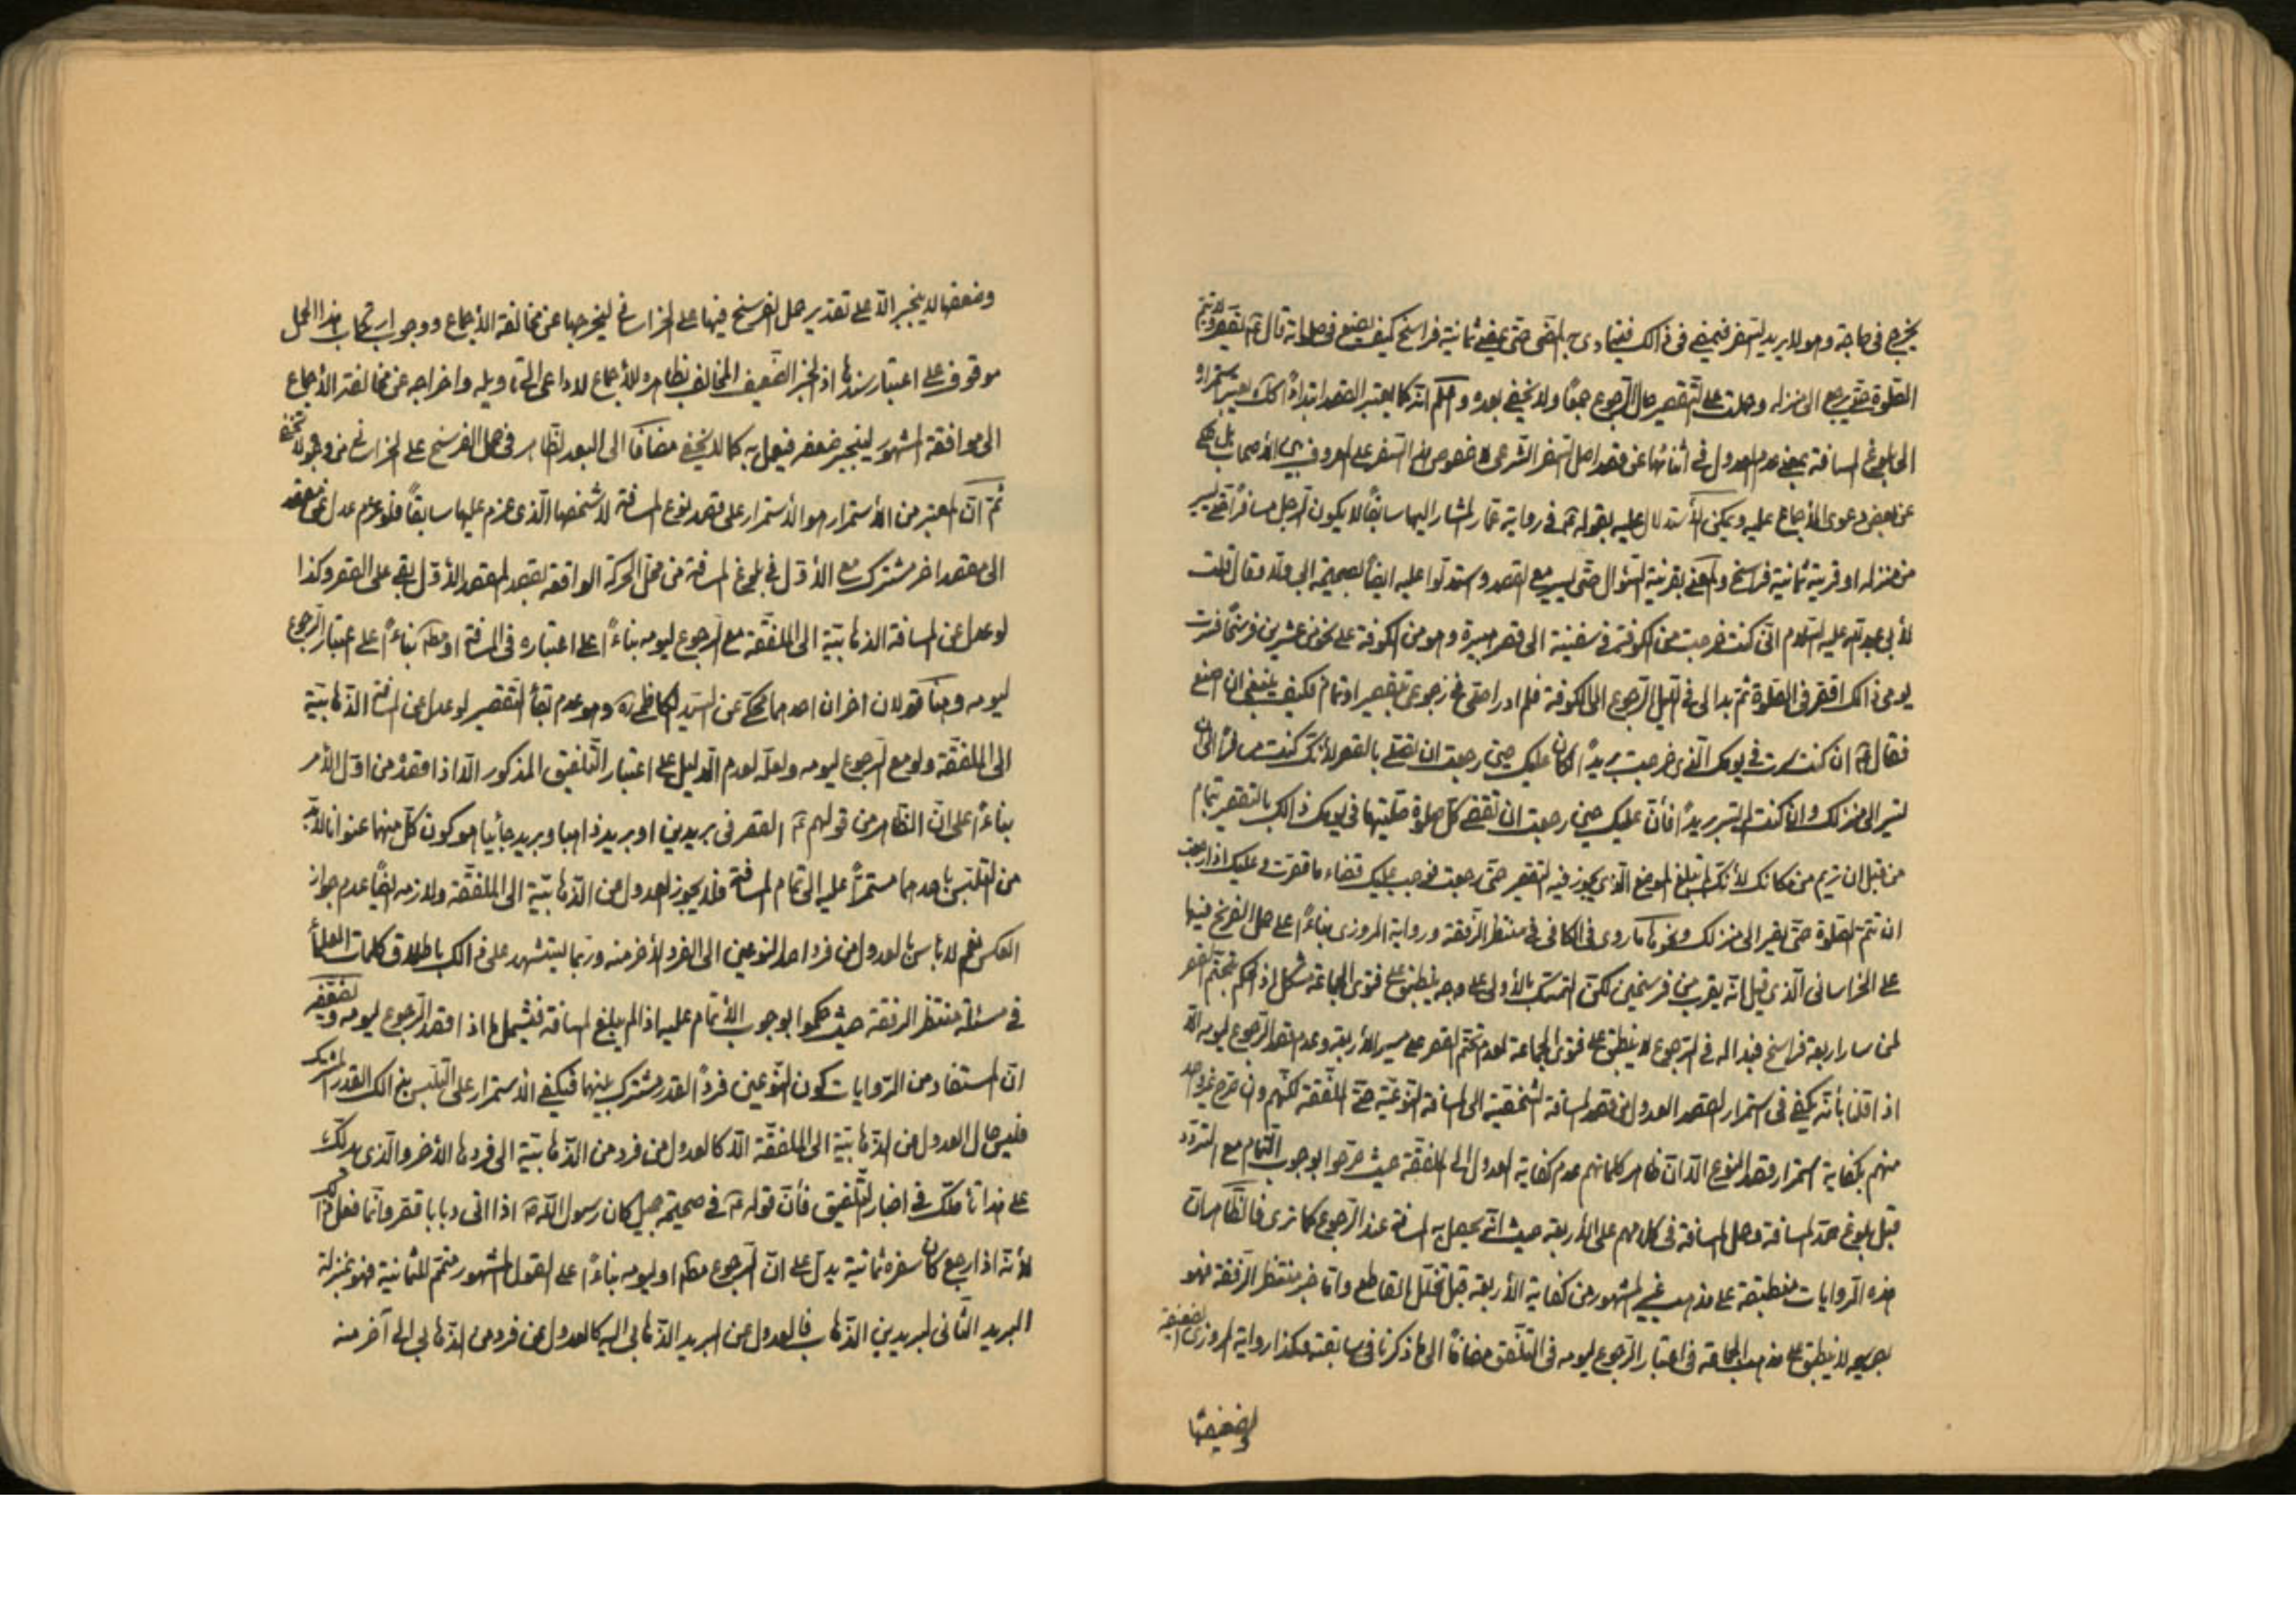 يخرج في حاجة وهو لا يريد السفر فيمضي في ذالك فيتمادى به المضي حتى يمضي ثمانية فراسخ كيف يصنع في صلوته قال ع يقصر ولا يتم
الصلوة حتى يرجع الى منزله وحملت على التقصير حال الرجوع جمعاً ولا يخفى بعده واعلم انه كما يعتبر القصد ابتداءً كك يعتبر استمراره
الى بلوغ المسافة بمعنى عدم العدول في أثنائها عن قصد اصل السفر الشرعي لا خصوص السفر على المعروف بين الأصحاب بل حكي
عن بعض دعوى الأجماع عليه ويمكن الأستدلال عليه بقوله ع في رواية عمار المشار اليها سابقاً لا يكون الرجل مسافراً حتى يسير
من منزله او قرية ثمانية فراسخ والمعنى بقرينة السؤال حتى يسير مع القصد واستدلوا عليه ايضاً بصحيحة ابي ولاد وقال قلت
لأبي عبد الله عليه السلام انى كنت خرجت من الكوفة في سفينة الى قصر هبيرة وهو من الكوفة على نحو من عشرين فرسخاً فسرت
يومي ذالك اقصر في الصلوة ثم بدا لى في الليل الرجوع الى الكوفة فلم ادر اصلي في رجوعي بتقصير او تمام فكيف ينبغي ان اصنع
فقال ع ان كنت سرت في يومك الذي خرجت بريداً كان عليك حين رجعت ان تصلي بالقصر لأنك كنت مسافراً الى ان
تسير الى منزلك وان كنت لم تسر بريداً فأن عليك حين رجعت ان تقضي كل صلوة صليتها في يومك ذالك بالتقصير بتمام
من قبل ان تريم من مكانك لأنك لم تبلغ الموضع الذي يجوز فيه التقصير حتى رجعت فوجب عليك قضاء ما قصرت وعليك اذا رجعت
ان تتم الصلوة حتى تصير الى منزلك ونحوها ما روى في الكافي في منتظر الرفقة ورواية المروزي بناءً على حمل الفرسخ فيها
على الخراساني الذي قيل انه يقرب من فرسخين لكن التمسك بالأولى على وجه ينطبق على فتوى الجماعة مشكل اذ الحكم بتحتم القصر
لمن سار اربعة فراسخ فبدا له في الرجوع لا ينطبق على فتوى الجماعة لعدم تحتم القصر على مسير الأربعة وعدم قصد الرجوع ليومه الا
اذا قلنا بأنه يكفي في استمرار القصد العدول من قصد المسافة الشخصية الى المسافة النوعية حتى الملفقة لكنهم وان صرح غير واحد
منهم بكفاية استمرار قصد النوع الا ان ظاهر كلماتهم عدم كفاية العدول الى الملفقة حيث صرحوا بوجوب التمام مع التردد
قبل بلوغ حد المسافة وحمل المسافة في كلامهم على الأربعة حيث انه يحصل به المسافة عند الرجوع كما ترى فالظاهر ان
هذه الروايات منطبقة على مذهب غير المشهور من كفاية الأربعة قبل تخلل القاطع واما خبر منتظر الرفقة فهو
بصريحه لا ينطبق على مذهب الجماعة في اعتبار الرجوع ليومه في التلفق مضافاً الى ما ذكرنا في سابقته وهكذا رواية المروزي الضعيفة
وضعفها
وضعفها لا ينجبر الا على تقدير حمل الفرسخ فيها على الخراساني ليخرجها عن مخالفة الأجماع ووجوب ارتكاب هذا الحمل
موقوف على اعتبار سندها اذ الخبر الضعيف المخالف بظاهره للأجماع لا داعي الى تاويله واخراجه عن مخالفة الأجماع
الى موافقة المشهور لينجبر ضعفه فيعمل به كما لا يخفى مضافاً الى البعد الظاهر في حمل الفرسخ على الخراساني من وجوه لا تخفى
ثم ان المعتبر من الأستمرار هو الأستمرار على قصد نوع المسافة لا شخصها الذي عزم عليها سابقاً فلو عزم عدل عن مقصد
الى مقصد اخر مشترك مع الأول في بلوغ المسافة من محل الحركة الواقعة بقصد المقصد الأول بقى على القصر وكذا
لو عدل عن المسافة الذهابية الى الملفقة مع الرجوع ليومه بناءً على اعتباره في المسافة او مطلقا بناءً على اعتبار الرجوع
ليومه وهنا قولان اخران احدهما محكي عن السيد الكاظمي ره وهو عدم بقأ التقصير لو عدل عن المسافة الذهابية
الى الملفقة ولو مع الرجوع ليومه ولعله لعدم الدليل على اعتبار التلفيق المذكور الا اذا قصد من اول الأمر
بناءً على ان الظاهر من قولهم ع القصر في بريدين او بريد ذاهبا وبريد جائيا هو كون كل منهما عنوانا لا بد
من التلبس باحدهما مستمراً عليه الى تمام المسافة فلا يجوز العدول من الذهابية الى الملفقة ولازمه ايضاً عدم جواز
العكس نعم لا بأس بالعدول من فرد احد النوعين الى الفرد الأخر منه وربما يستشهد على ذالك باطلاق كلمات العلمأ
في مسئلة منتظر الرفقة حيث حكموا بوجوب الأتمام عليه اذا لم يبلغ المسافة فيشمل ما اذا قصد الرجوع ليومه و
ان المستفاد من الروايات كون النوعين فرداً لقدر مشترك بينهما فيكفي الأستمرار على التلبس بذالك القدر المشترك
فليس حال العدول من الذهابية الى الملفقة الا كالعدول من فرد من الذهابية الى فردها الأخر والذي يدلك
على هذا تأملك في اخبار التلفيق فأن قوله ع في صحيحة جميل كان رسول الله ص اذا اتى ذبابا قصر وانما فعل ذلك
لأنه اذا رجع كان سفره ثمانية يدل على ان الرجوع مطلقا او ليومه بناءً على القول المشهور متمم للثمانية فهو بمنزلة
البريد الثاني لبريدين الذهاب فالعدول من البريد الذهابي اليه كالعدول من فرد من الذهابي الى آخر منه